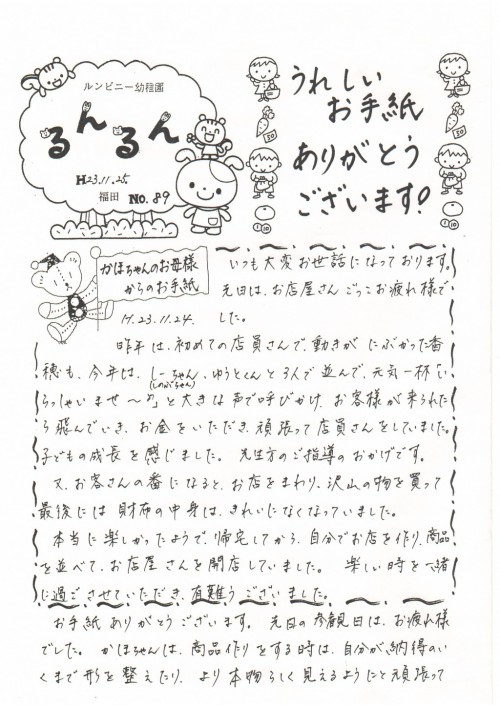 ルンビニー幼稚園
るんるん
H23.11.25.
福田 No.89
うれしい
お手紙
ありがとう
ございます!
かほちゃんのお母様
からのお手紙
H.23.11.24.
いつも大変お世話になっております。
先日は、お店屋さんごっこお疲れ様で
した。
昨年は、初めての店員さんで、動きがにぶかった番
穂も、今年は、しーちゃん、ゆうとくんと3人で並んで、元気一杯「い
(しのぶちゃん)
らっしゃいませ〜!!」と大きな声で呼びかけ、お客様が来られた
ら飛んでいき、お金をいただき、頑張って店員さんをしていました。
子どもの成長を感じました。先生方のご指導のおかげです。
又、お客さんの番になると、お店をまわり、沢山の物を買って
最後には財布の中身は、きれいになくなっていました。
本当に楽しかったようで、帰宅してから、自分でお店を作り、商品
を並べて、お店屋さんを開店していました。 楽しい時を一緒
に過ごさせていただき、有難うございました。
お手紙ありがとうございます。先日の参観日は、お疲れ様
でした。かほちゃんは、商品作りをする時は、自分が納得のい
くまで形を整えたり、より本物らしく見えるようにと頑張って